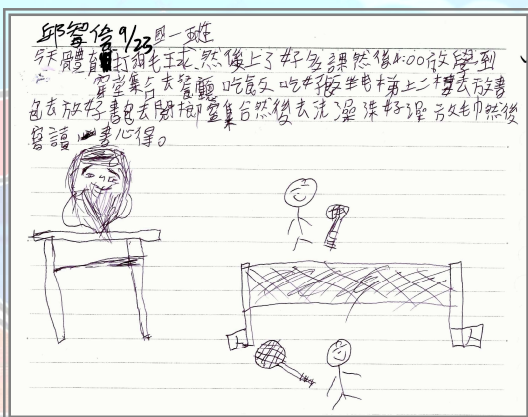 邱智 9/23 國一 班
今天體育打羽毛球,然後上了好多課然後4:00放學到
室集合去餐廳吃飯吃好飯坐電梯上二樓去放書
包去放好書包去開 集合然後去洗澡洗好澡放毛巾然後
寫讀書心得。